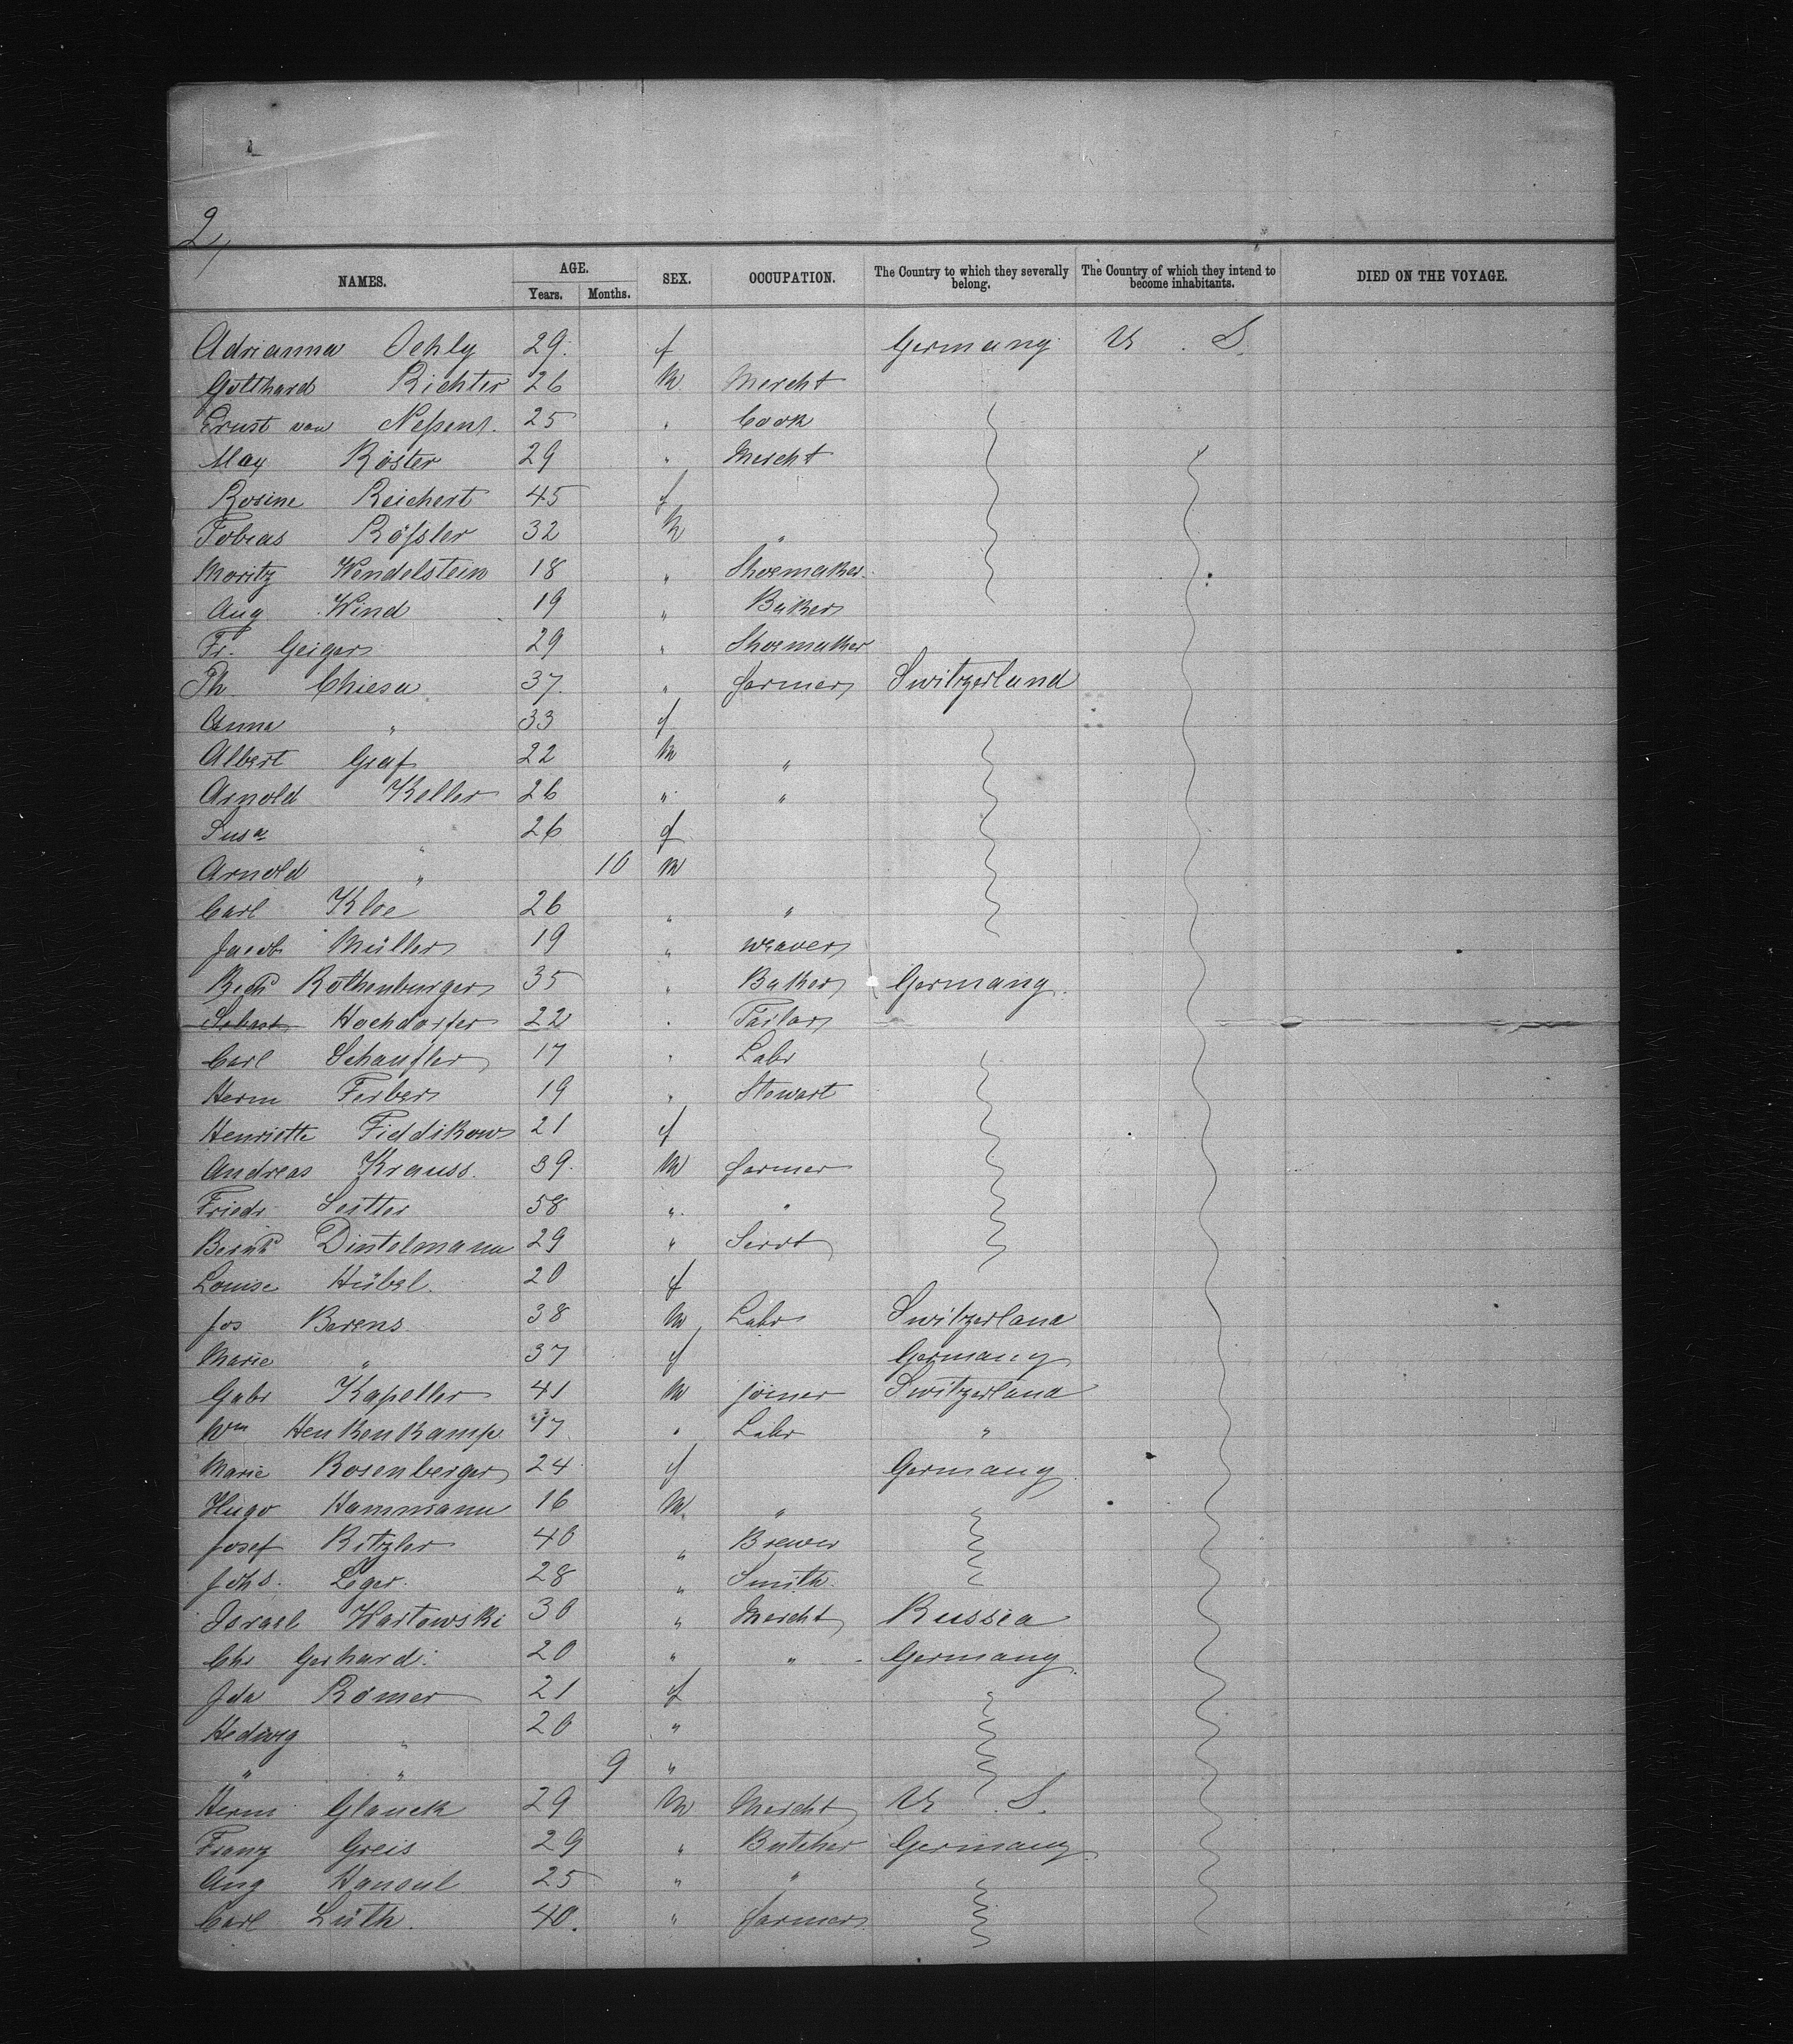 2,
NAMES. AGE. SEX. OCCUPATION. The Country to which they severally belong. The Country of which they intend to become inhabitants. DIED ON THE VOYAGE.
Years. Months.
Adrianna Oehly 29. f Germany U. S.
Gotthard Richter 26 m Mercht
Ernst von 25 " Cook
Max Röster 29 " Mercht
Rosine Reichert 45 f
Tobias Rößler 32 m "
Moritz Wendelstein 18 " Shoemaker
Aug Wind 19 " Baker
Fr. Geiger 29 " Shoemaker
Ph Chiesa 37. " farmer Switzerland
Anna " 33 f
Albert Graf 22 m "
Arnold Keller 26 " "
Susa " 26 f
Arnold " 10 m
Carl Kloe 26 " "
Jacob Müller 19 " weaver
Rothenburger 35 " Baker Germany.
Sebast Hochdorfer 22 " Tailor
Carl Schaufler 17 " Labr
Herm Ferber 19 " Stewart
Henriette Fiddikow 21 f
Andreas Krauss. 39. m farmer
Friedr Seitter 58 " "
Bernd Dintelmann 29 " Servt
Louise Hübel. 20 f
Jos Berens. 38 m Labr Switzerland
Marie " 37 f Germany
Gabr Kapeller 41 m joiner Switzerland
Wm Henkenkamp 17 " Labr "
Marie Rosenberger 24 f Germany
Hugo Hammann 16 m "
Josef Ritzler 40 " Brewer
Johs. Leger. 28 " Smith.
Israel Wartowski 30 " Mercht Russia
Chr Gerhard. 20 " " Germany.
Ida Römer 21 f
Hedwig " 20 "
" " 9 "
Herm Glauck 29 m Mercht U. S.
Franz Greis 29 " Butcher Germany.
Aug Hansul 25 " "
Carl Lüth. 40. " farmer